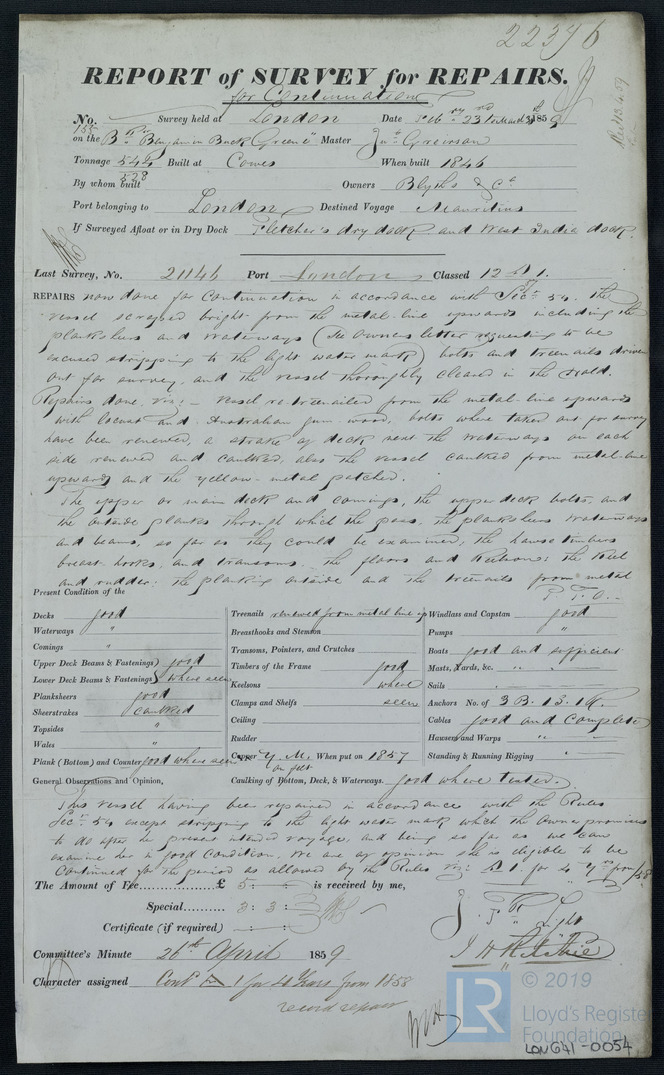 22376
REPORT of SURVEY for REPAIRS.
for Continuation
No. Survey held at London Date Feb ry 23 rd 1859
on the Benjamin Buck Greene Master Jn o Greirson
Tonnage 544 Built at Cowes When built 1846
528
By whom built Owners Blyths & Co
Port belonging to London Destined Voyage Mauritius
If Surveyed Afloat or in Dry Dock Fletcher's dry dock and West India dock.
Last Survey, No. 21146 Port London Classed 12 A 1.
REPAIRS now done for Continuation in accordance with Sec n 54. The
vessel scraped bright from the metal-line upwards including the
planksheers and waterways (the Owners letter requesting to be
excused stripping to the light water mark) bolts and treenails driven
out for survey, and the vessel thoroughly cleared in the Hold.
Repairs done, viz; – Vessel re-treenailed from the metal-line upwards
with locust and Australian gum wood, bolts where taken out for survey
have been renewed, a strake of deck next the waterways on each
side renewed and caulked, also the vessel caulked from metal-line
upwards and the yellow-metal patched.
The upper or main deck and comings, the upper deck bolts, and
the outside planks through which they pass, the planksheers waterways
and beams, so far as they could be examined, the hawse timbers
breast-hooks, and transoms. the floors and Keelson: the Keel
and rudder. the planking outside and the treenails from metal
P.T.O.
Present Condition of the
Decks good
Waterways "
Comings "
Upper Deck Beams & Fastenings good
Lower Deck Beams & Fastenings where seen
Planksheers good
Sheerstrakes caulked
Topsides "
Wales "
Plank (Bottom) and Counter good where seen
Treenails renewed from metal line up
Breasthooks and Stemson
Transoms, Pointers, and Crutches
Timbers of the Frame good
Keelsons where
Clamps and Shelfs seen
Ceiling
Rudder
Copper Y. M. When put on 1857
on felt
Caulking of Bottom, Deck, & Waterways. good where tested.
Windlass and Capstan good
Pumps "
Boats good and sufficient
Masts, Yards, &c. " "
Sails
Anchors No. of 3 B. 1 S. 1 K.
Cables good and Complete
Hawsers and Warps " "
Standing & Running Rigging "
General Observations and Opinion,
This vessel having been repaired in accordance with the Rules
Sec n 54 except stripping to the light water mark which the Owner promises
to do after the present intended voyage, and being so far as we can
examine her in good condition, We are of opinion she is eligible to be
Continued for the period as allowed by the Rules viz: A 1. for 4 y rs from /58
The Amount of Fee £ 5 : is received by me,
Special 3 : 3 :
Certificate (if required)
J. H. Ritchie
Committee's Minute 26th April 1859
Character assigned Cont d A 1 for 4 Years from 1858
record repair
© 2019
LR
Lloyd's Register
Foundation
LON641-0054